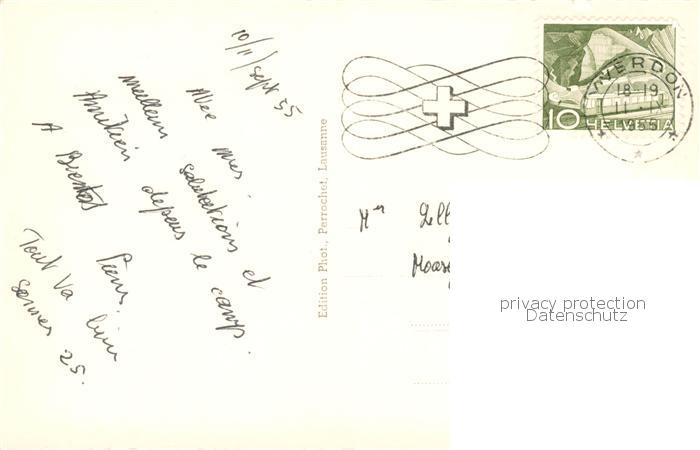 10/11/sept 55
Avec mes
salutations et
meilleurs
Amitiés depuis le camp.
A Bientôt Pierre.
Tout va bien
sommes 25.
Edition Phot., Perrochet, Lausanne
YVERDON
18-19
11.IX
1955
10 HELVETIA
Mer
privacy protection
Datenschutz